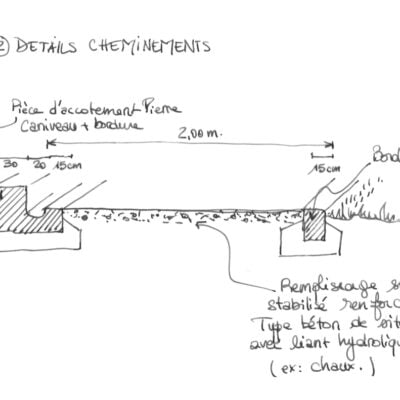 ② DETAILS CHEMINEMENTS
Pièce d'accotement Pierre
Caniveau + bordure
2,00 m.
30 20 15cm
15cm
Bord
Remplissage s
stabilisé renforc
Type béton de sit
avec liant hydroliq
(ex: chaux.)